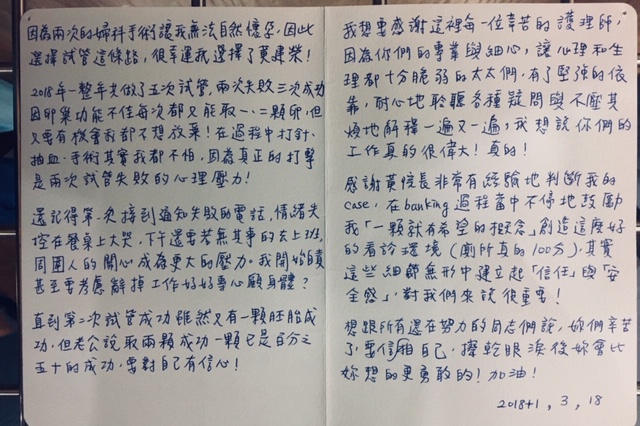 因為兩次的婦科手術讓我無法自然懷孕，因此
選擇試管這條路，很幸運我選擇了茂盛！
2018年一整年共做了五次試管，兩次失敗三次成功
因卵巢功能不佳每次都又能取一、二顆卵，但
只要有機會我都不想放棄！在過程中打針、
抽血、手術其實我都不怕，因為真正的打擊
是兩次試管失敗的心理壓力！
還記得第一次接到通知失敗的電話，情緒失
控在餐桌上大哭，下午還要若無其事的去上班，
周圍人的關心成為更大的壓力。我開始自責
甚至要考慮辭掉工作好好專心顧身體？
直到第二次試管成功雖然又有一顆胚胎成
功，但老公說取兩顆成功一顆已是百分之
五十的成功，要對自己有信心！
我想要感謝這裡每一位辛苦的護理師，
因為你們的專業與細心，讓心理和生
理都十分脆弱的太太們，有了堅強的依
靠，耐心地聆聽各種疑問與不厭其
煩地解釋一遍又一遍，我想說你們的
工作真的很偉大！真的！
感謝黃院長非常有經驗地判斷我的
case，在banking過程當中不停地鼓勵
我「一顆就有希望的概念」創造這麼好
的看診環境（廁所真的100分），其實
這些細節無形中建立起「信任」與「安
全感」，對我們來說很重要！
想跟所有還在努力的同志們說，妳們辛苦
了，要信相自己，擦乾眼淚後妳會比
妳想的更勇敢的！加油！
2018+1，3，18